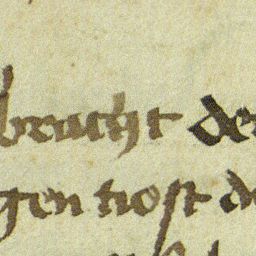 bracht der
gen trost d